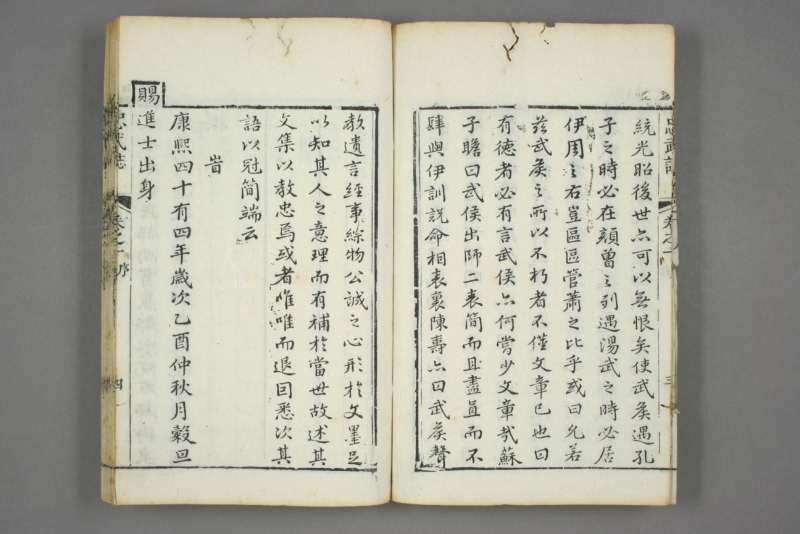 統光昭後世亦可以無恨矣使武矦遇孔
子之時必在顔曾之列遇湯武之時必居
伊周之右豈區區管蕭之比乎或曰允若
兹武矦之所以不朽者不僅文章已也曰
有徳者必有言武侯亦何嘗少文章哉蘇
子瞻曰武侯出師二表簡而且盡直而不
肆與伊訓説命相表裏陳壽亦曰武矦聲
教遺言經事綜物公誠之心形於文墨足
以知其人之意理而有補於當世故述其
文集以教忠焉或者唯唯而退囙悉次其
語以冠簡端云
旹
康熙四十有四年歲次乙酉仲秋月穀旦
賜
進士出身
忠武誌
卷之一 序
四